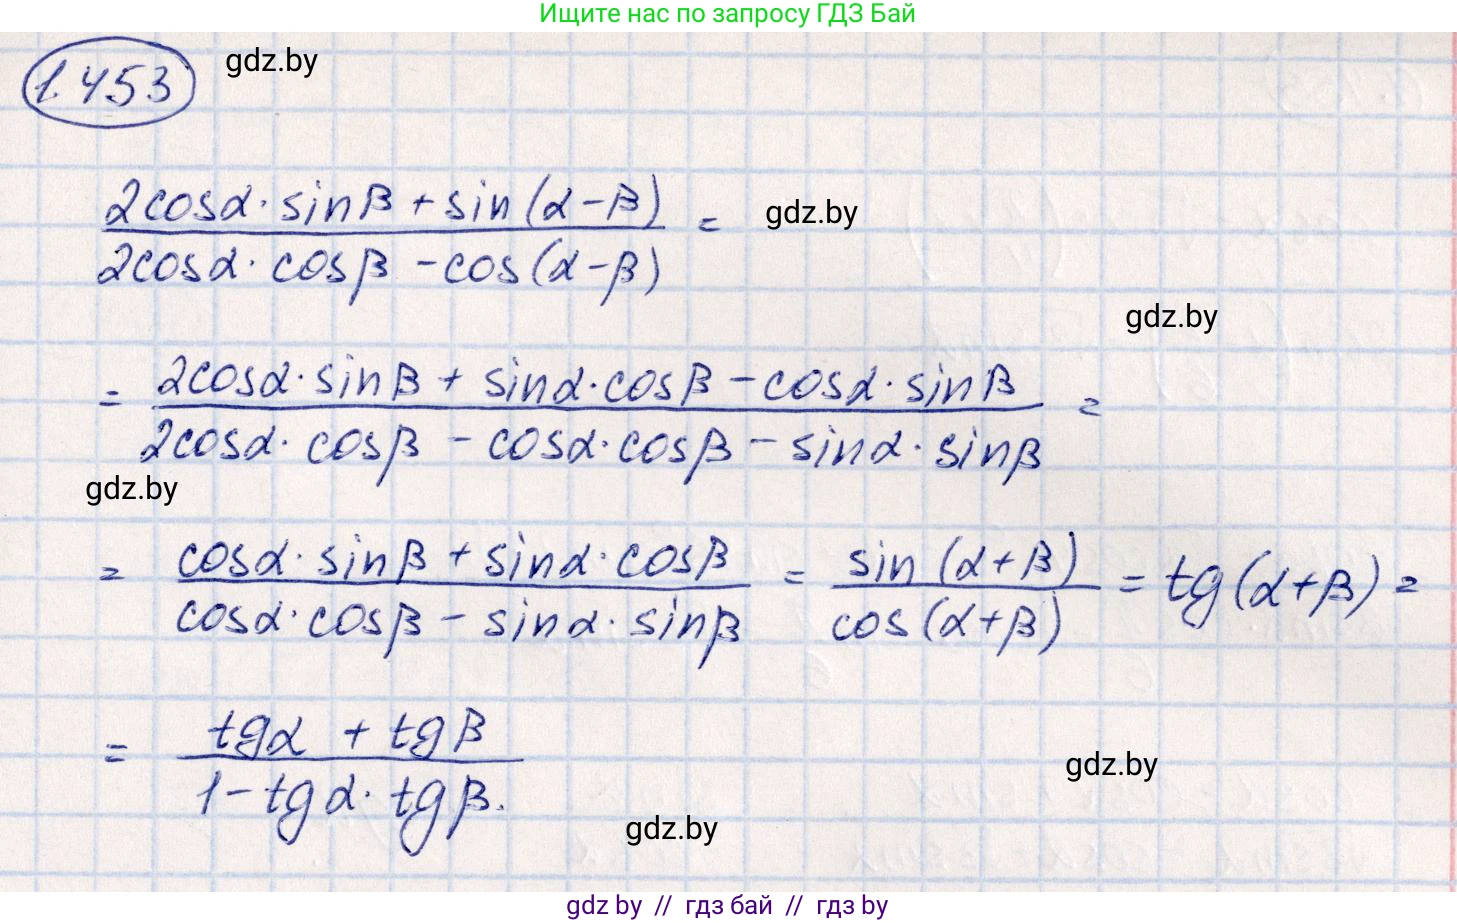 Ищите нас по запросу ГДЗ Бай
1.453 gdz.by
2cosα·sinβ + sin(α-β)
——— = gdz.by
2cosα·cosβ - cos(α-β)
gdz.by
= 2cosα·sinβ + sinα·cosβ - cosα·sinβ
——— =
2cosα·cosβ - cosα·cosβ - sinα·sinβ
gdz.by
= cosα·sinβ + sinα·cosβ / cosα·cosβ - sinα·sinβ = sin(α+β) / cos(α+β) = tg(α+β) =
= tgα + tgβ
———
1 - tgα·tgβ.
gdz.by
gdz.by
gdz by // гдз бай // гдз by